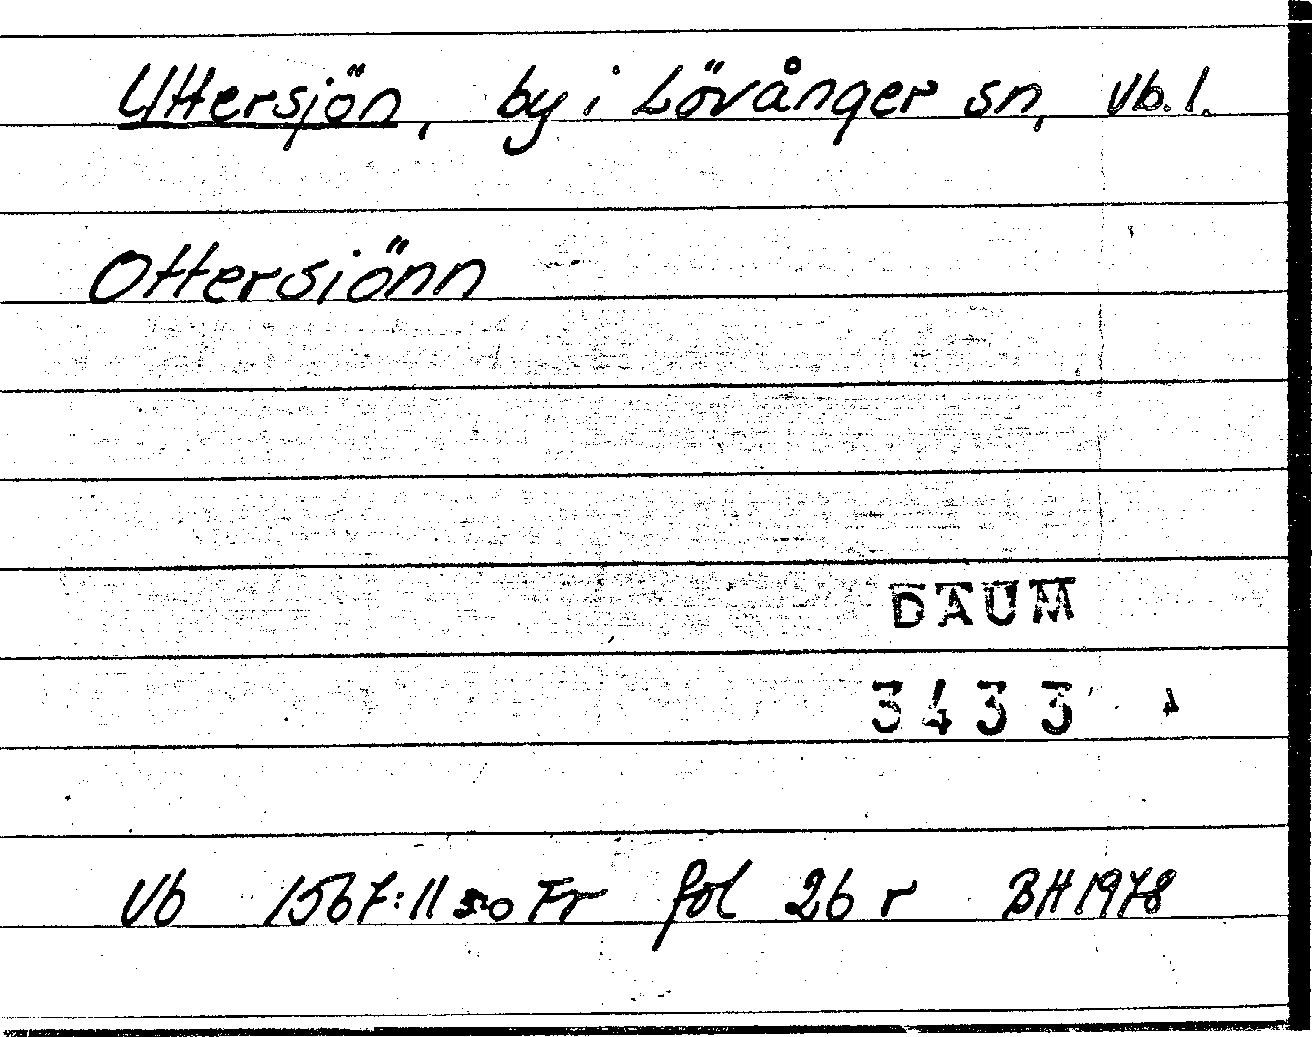 Uttersjön, by i Lövånger sn, Vb. l.
Ottersiönn
DAUM
3433
Vb 1567:11 Fr fol 26 r BH 1978